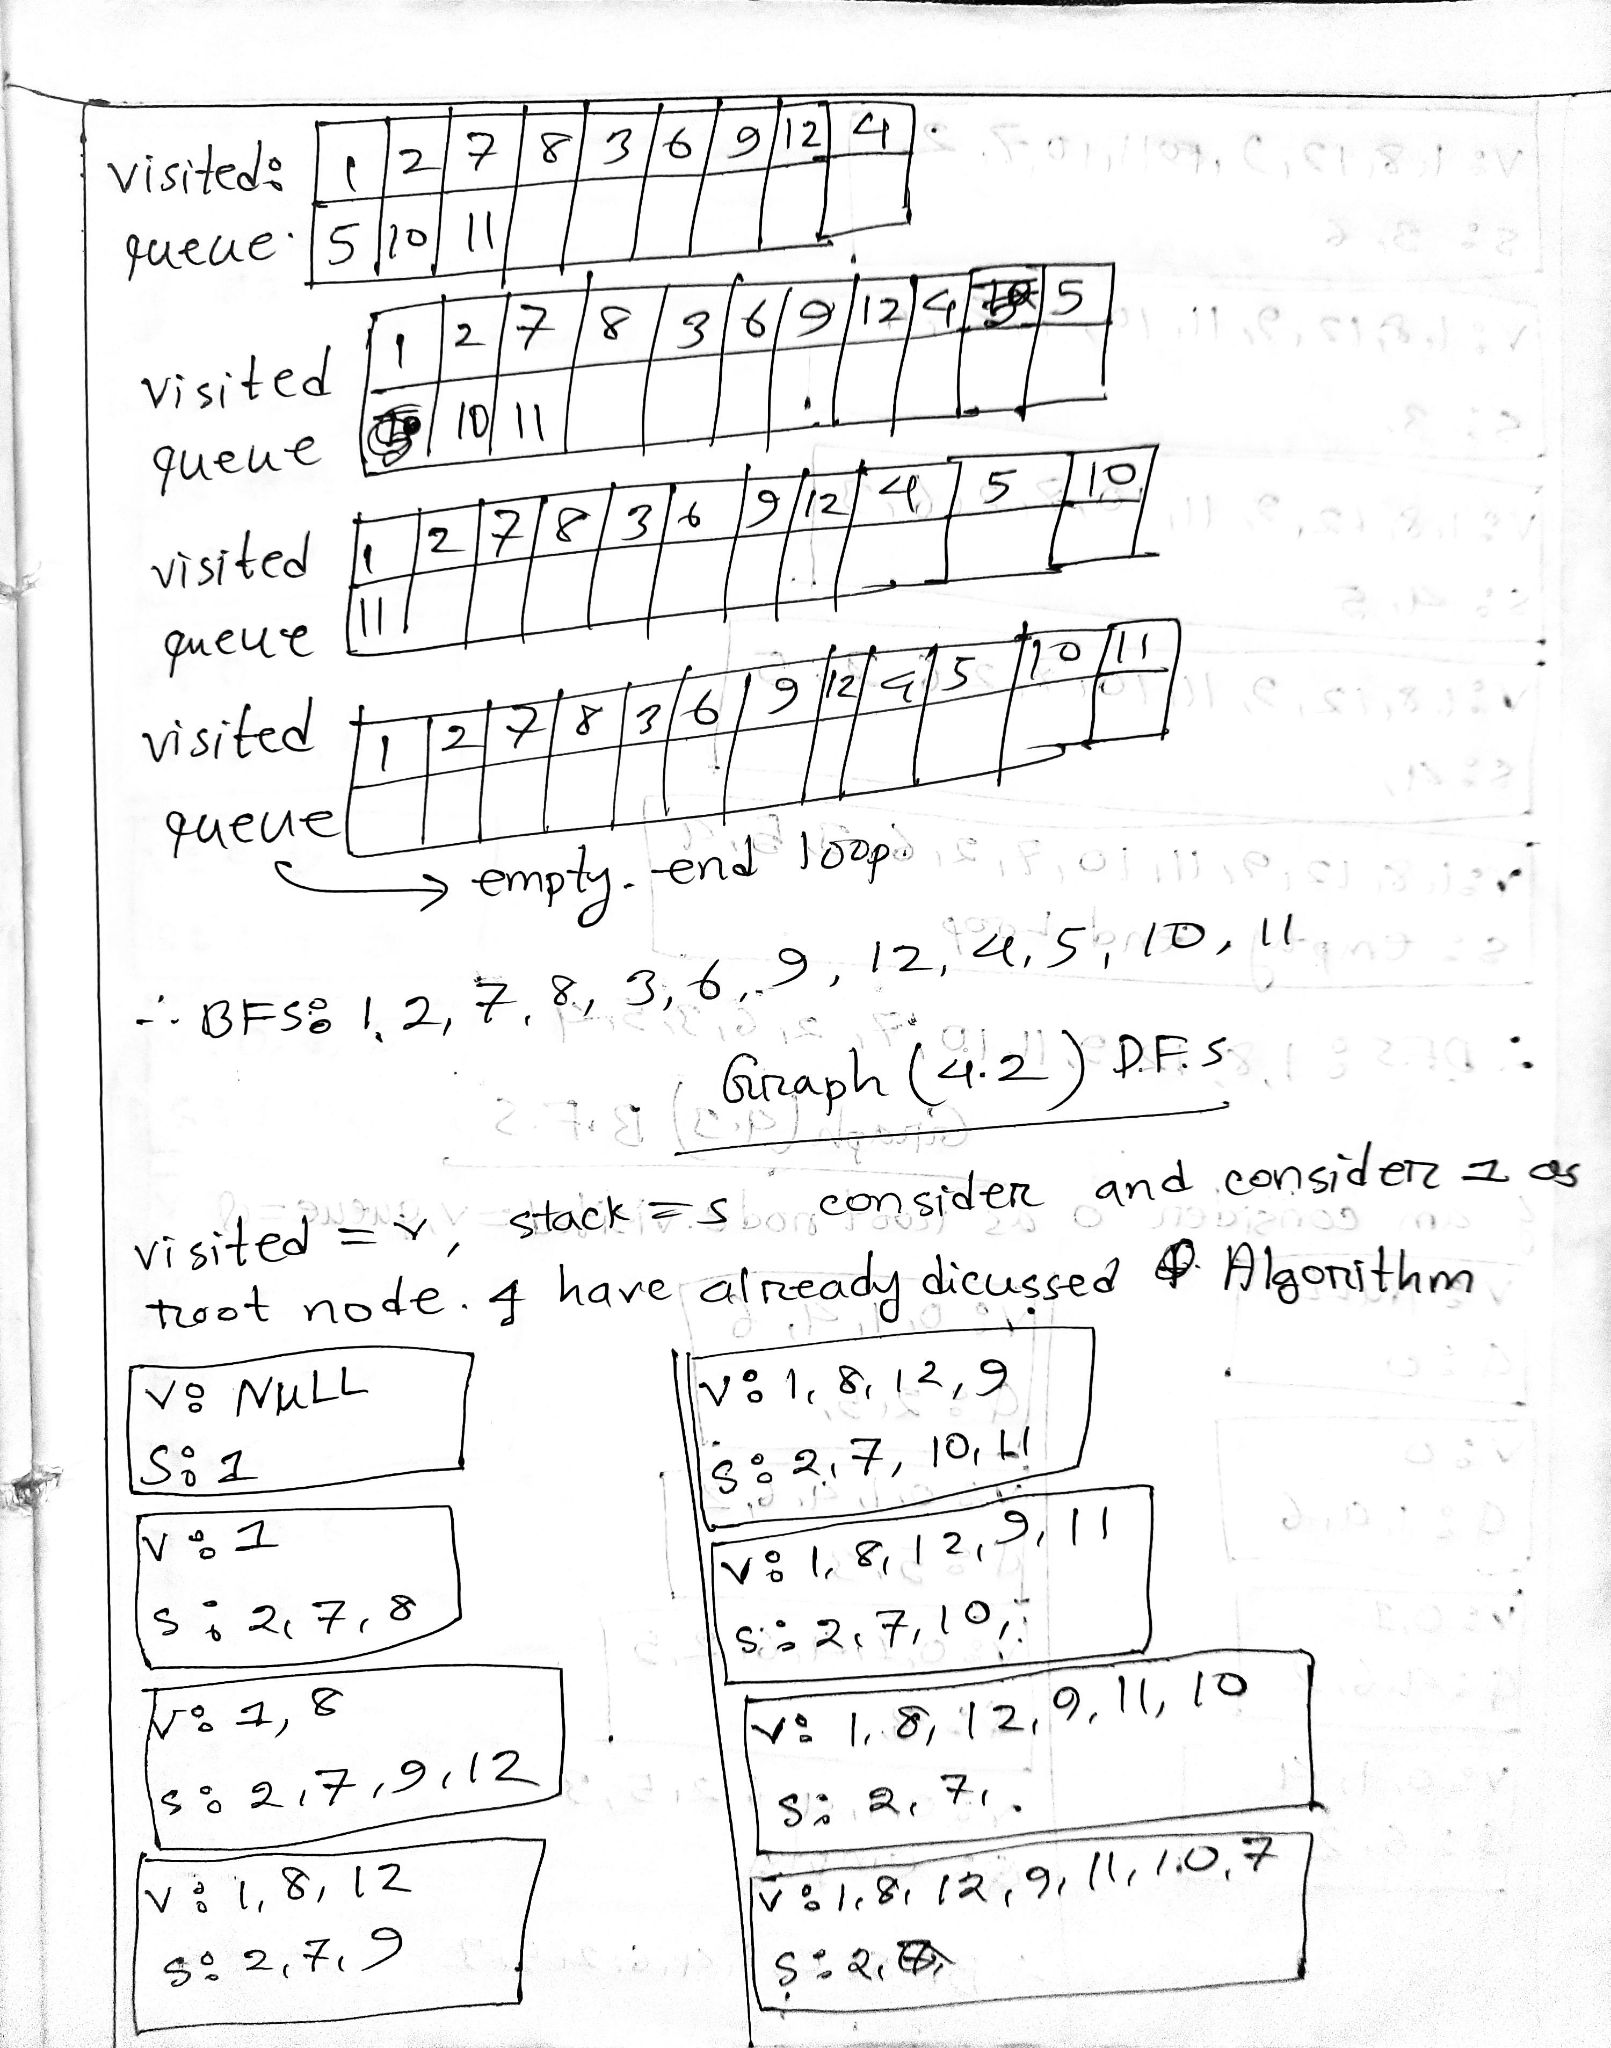 visited: 1 2 7 8 3 6 9 12 4
queue: 5 10 11
visited 1 2 7 8 3 6 9 12 4 5
queue 10 11
visited 1 2 7 8 3 6 9 12 4 5 10
queue 11
visited 1 2 7 8 3 6 9 12 4 5 10 11
queue
→ empty. end loop.
∴ BFS: 1, 2, 7, 8, 3, 6, 9, 12, 4, 5, 10, 11
Graph (4.2) D.F.S
visited = v, stack = s consider and consider 1 as
root node. I have already dicussed Algorithm
V: NULL
S: 1
V: 1
S: 2, 7, 8
V: 1, 8
S: 2, 7, 9, 12
V: 1, 8, 12
S: 2, 7, 9
V: 1, 8, 12, 9
S: 2, 7, 10, 11
V: 1, 8, 12, 9, 11
S: 2, 7, 10,
V: 1, 8, 12, 9, 11, 10
S: 2, 7,
V: 1, 8, 12, 9, 11, 10, 7
S: 2,